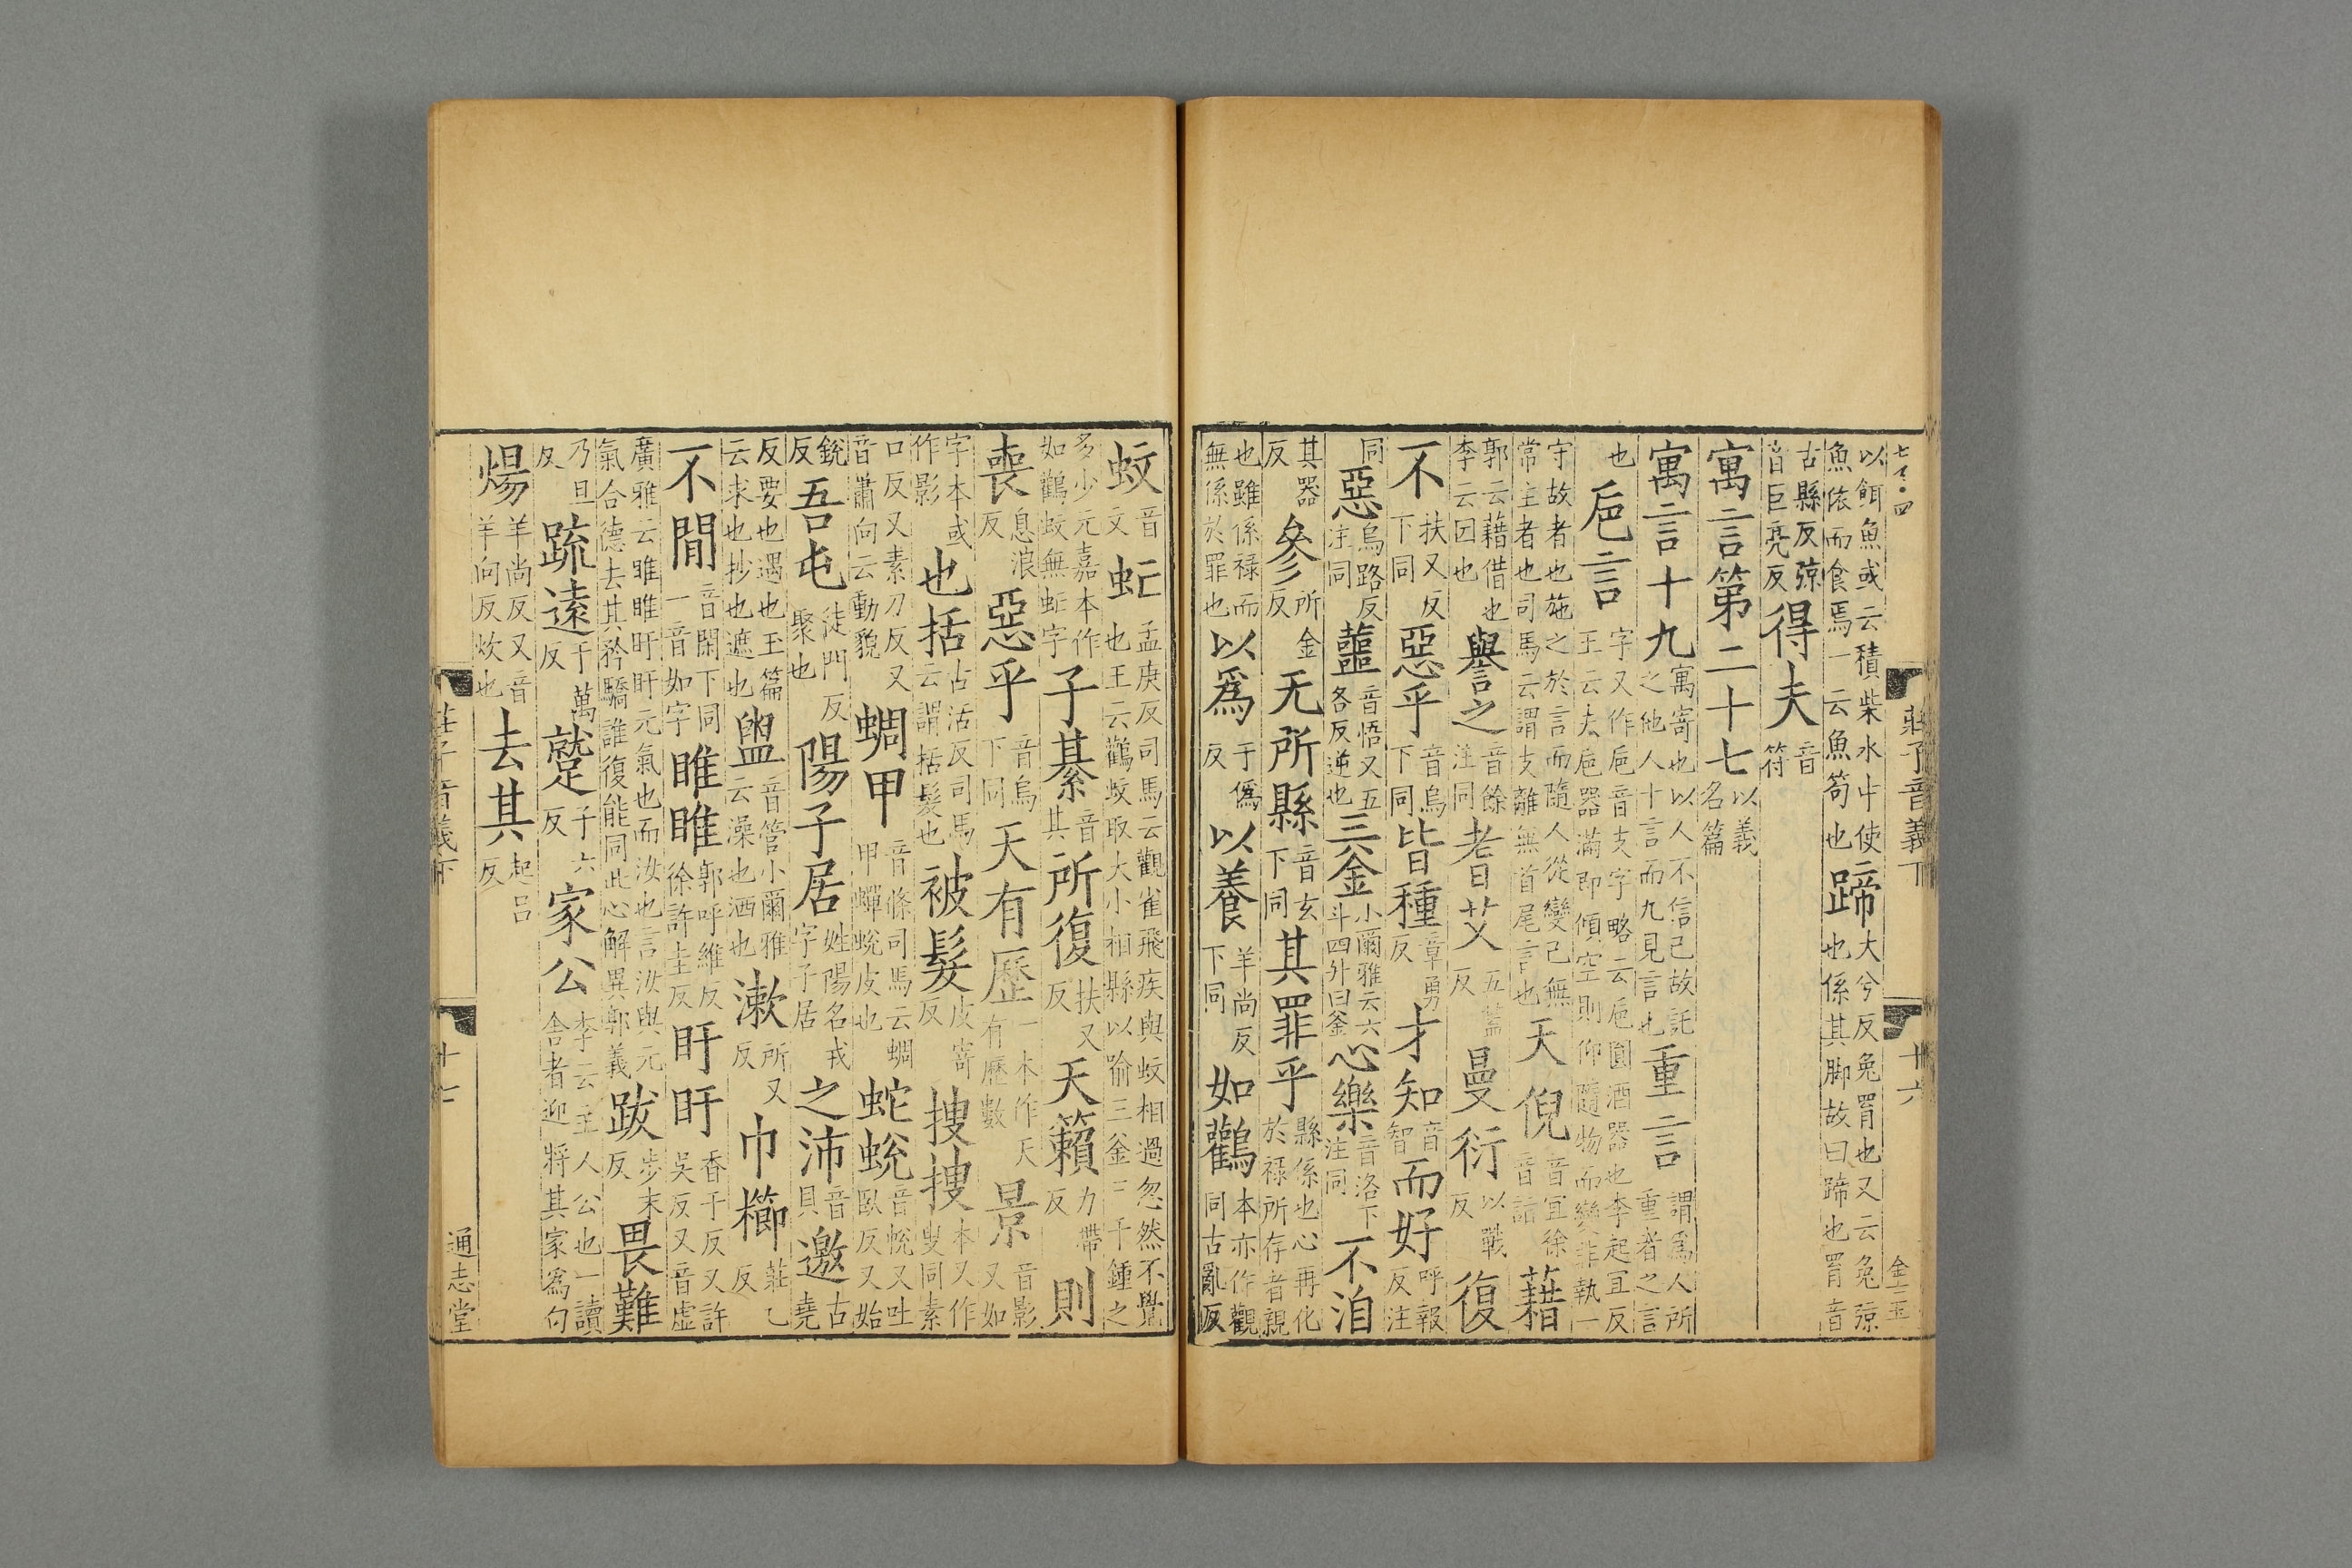 莊子音義下 十六
以餌魚或云積柴水中使魚依而食焉一云魚笱也蹄大兮反兔罥也又云兔弶也係其脚故曰蹄也罥音
古縣反弶音巨亮反得夫音符
寓言第二十七以義名篇
寓言十九寓寄也以人不信己故託之他人十言而九見言也重言謂爲人所重者之言
也巵言字又作巵音支字略云巵圓酒器也李起宜反王云夫巵器滿即傾空則仰隨物而變非執一
守故者也施之於言而隨人從變己無常主者也司馬云謂支離無首尾言也天倪音宜徐音詣藉
郭云藉借也李云因也譽之音餘注同耆艾五蓋反曼衍以戰反復
不扶又反下同惡乎音烏下同皆種章勇反才知音智而好呼報反注
同惡烏路反注同蘁音悟又五各反逆也三釜小爾雅云六斗四升曰釜心樂音洛下注同不洎
其器反參所金反无所縣音玄下同其罪乎縣係也心再化於祿所存者親
也雖係祿而無係於罪也以爲于僞反以養羊尚反下同如鸛本亦作觀同古亂反
蚊音文虻孟庚反司馬云觀雀飛疾與蚊相過忽然不覺也王云鸛蚊取大小相縣以喻三釜三千鍾之
多少元嘉本作如鸛蚊無虻字子綦音其所復扶又反天籟力帶反則
喪息浪反惡乎音烏下同天有歷一本作天有歷數景音影又如
字本或作影也括古活反司馬云謂括髮也被髮皮寄反搜搜本又作叟同素
口反又素刀反又音蕭向云動貌蜩甲音條司馬云蜩甲蟬蛻皮也蛇蛻音帨又吐臥反又始
銳反吾屯徒門反聚也陽子居姓陽名戎字子居之沛音貝邀古堯
反要也遇也玉篇云求也抄也遮也盥音管小爾雅云澡也洒也漱所又反巾櫛莊乙反
不閒音閑下同一音如字睢睢郭呼維反徐許圭反盱盱香于反又許吳反又音虛
廣雅云睢睢盱盱元氣也而汝也言汝與元氣合德去其矜驕誰復能同此心解異郭義跋步末反畏難
乃旦反疏遠于萬反蹵子六反家公李云主人公也一讀舍者迎將其家爲句
煬羊尚反又音羊向反炊也去其起呂反
莊子音義下 十七 通志堂